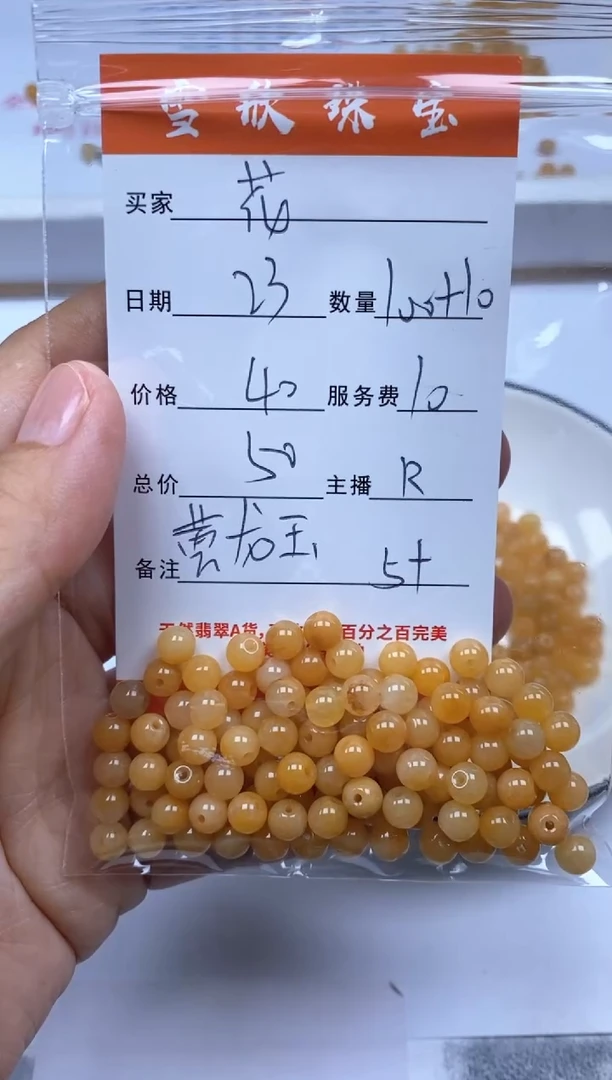 雪欣珠宝
买家 花
日期 23 数量 100+10
价格 40 服务费 10
总价 50 主播 R
备注 黄龙玉 5+
天然翡翠A货, 百分之百完美